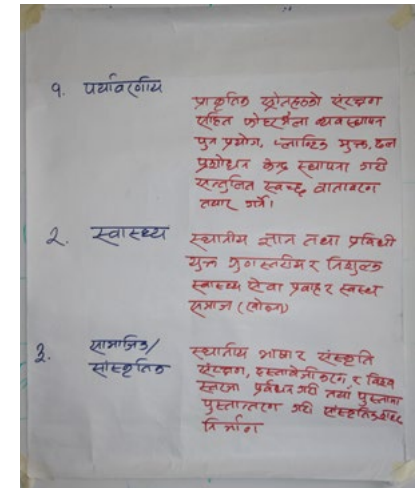 १. पर्यावरणीय
प्राकृतिक स्रोतहरुको संरक्षण
सहित फोहरमैला व्यवस्थापन
पुन प्रयोग, प्लाष्टिक मुक्त, ढल
प्रशोधन केन्द्र स्थापना गरी
सन्तुलित स्वच्छ वातावरण
तयार गर्ने।
२. स्वास्थ्य
स्थानीय ज्ञान तथा प्रविधी
युक्त गुणस्तरीय र निशुल्क
स्वास्थ्य सेवा प्रवाह र स्वस्थ
समाज
३. सामाजिक/
सांस्कृतिक
स्थानीय भाषा र संस्कृति
संरक्षण, हस्तान्तरण र विश्व
प्रर्वधन गरी नयाँ पुस्तामा
पुस्तान्तरण गरी सांस्कृतिक शहर
निर्माण